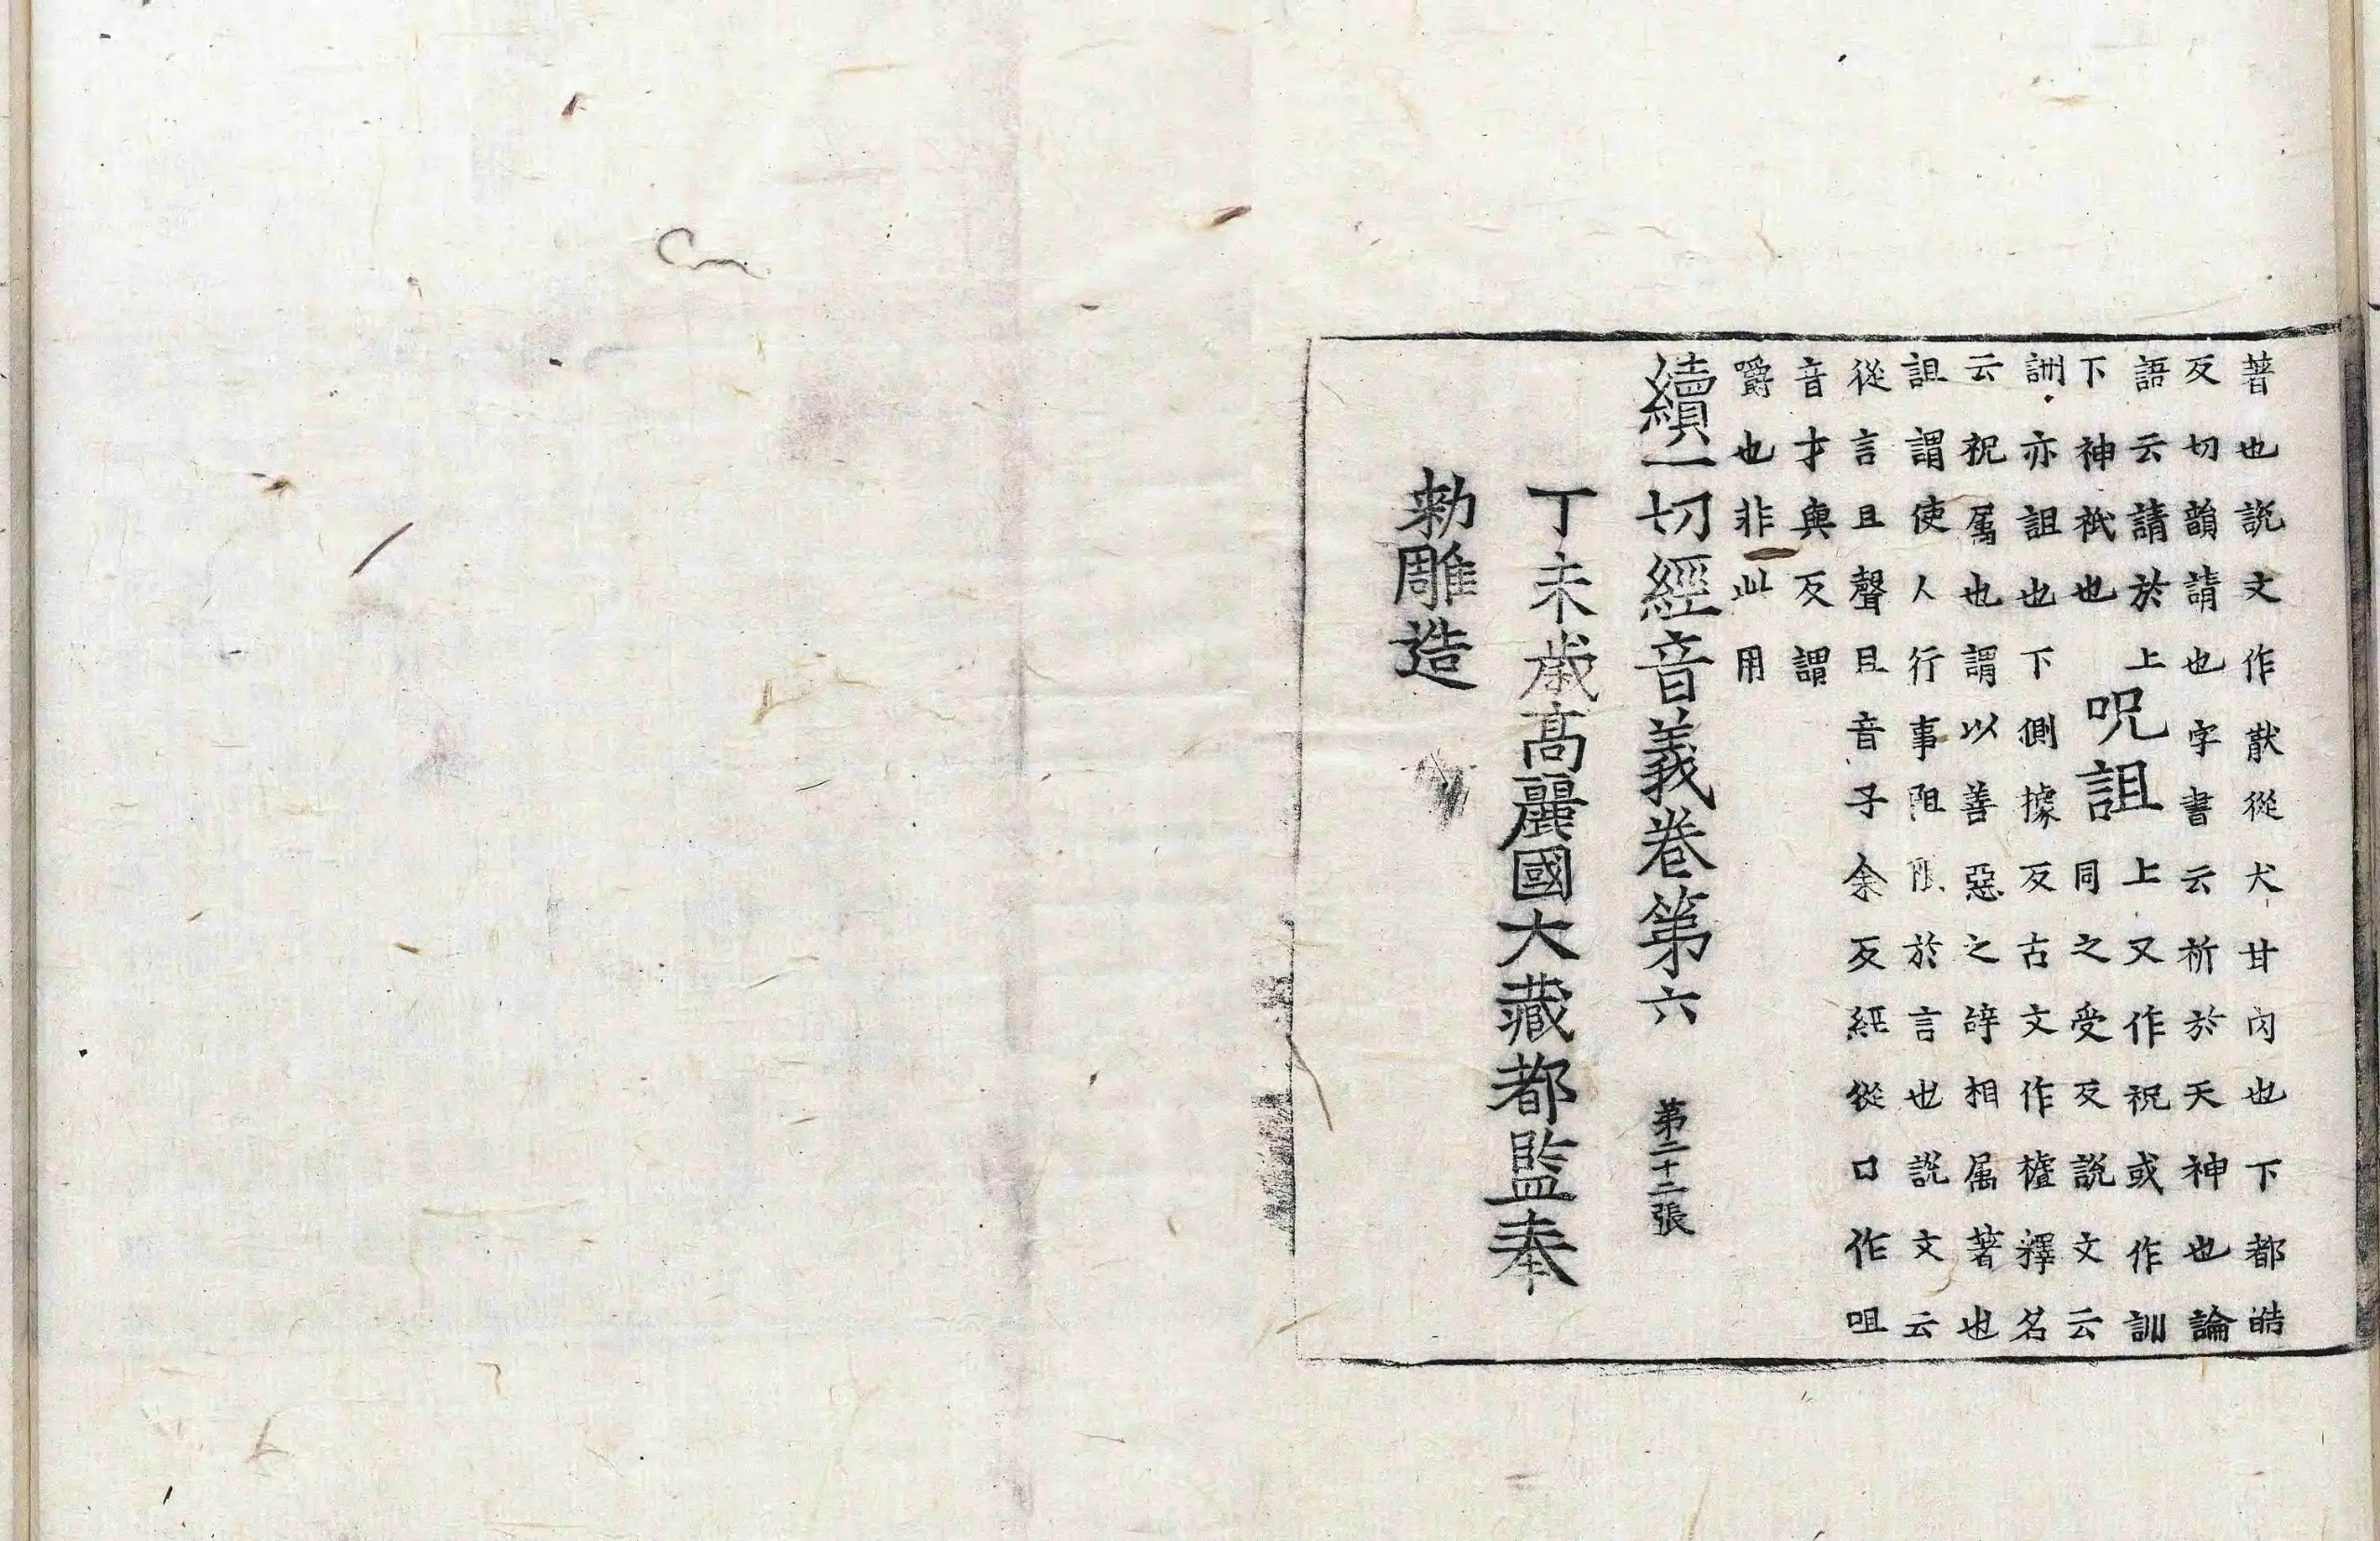 著也説文作猒從犬甘肉也下都皓
反切韻請也字書云祈於天神也論
語云請於上
下神祇也
呪詛
上又作祝或作訓
同之受反説文云
詶亦詛也下側據反古文作樝釋名
云祝属也謂以善惡之辝相属著也
詛謂使人行事阻限於言也説文云
從言且聲且音子余反經從口作咀
音才與反謂
嚼也非此用
續一切經音義卷第六 第二十二張
丁未歲高麗國大藏都監奉
勅雕造